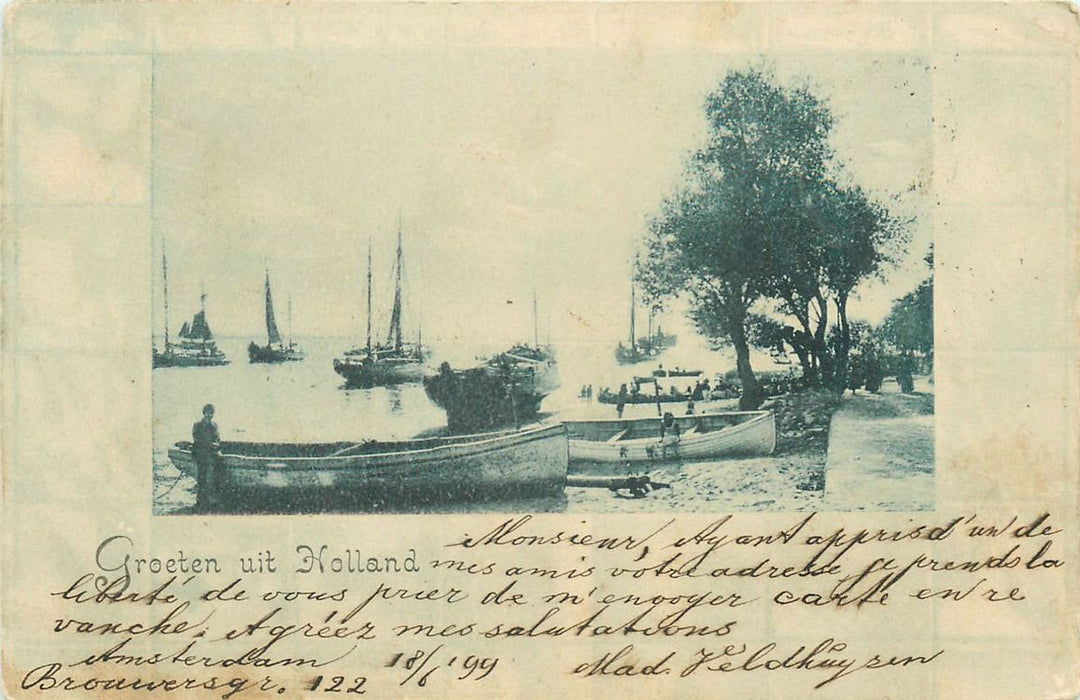 Groeten uit Holland
Monsieur, Ayant appris d'un de
mes amis votre adresse, je prends la
liberté de vous prier de m'envoyer carte en re
vanche. Agréez mes salutations
Amsterdam 18/6 '99 Mad. Veldhuyzen
Brouwersgr. 122